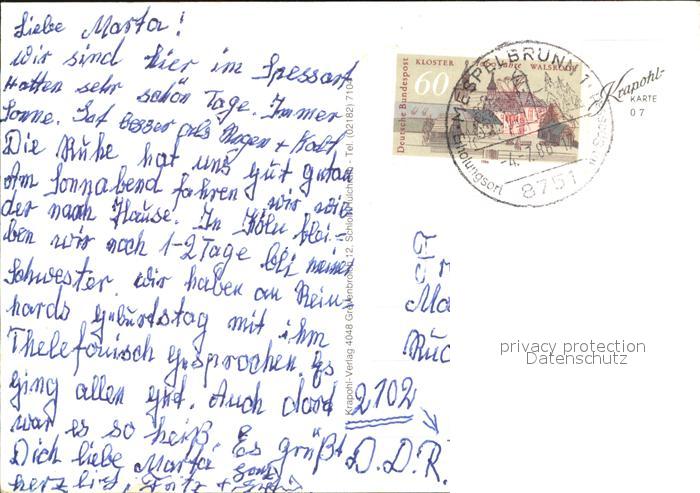 Liebe Marta!
Wir sind hier im Spessart
Hatten sehr schön Tage. Immer
Sonne. Ist besser als Regen + Kalt
Die Ruhe hat uns gut getan
Am Sonnabend fahren wir wie
der nach Hause. In Köln blei-
ben wir noch 1-2 Tage bei meiner
Schwester. wir haben an Rein
hards Geburtstag mit ihm
Thelefonisch gesprochen. Es
ging allen gut. Auch dord
war es so heiß. Es grüßt
Dich liebe Marta ganz
herzlich, Fritz +
Krapohl-Verlag 4048 Grevenbroich 12, Tel. (02182) 7104
Deutsche Bundespost
KLOSTER WALSRODE
60
MESPELBRUNN 1
8751
Erholungsort
im Spessart
Krapohl-
KARTE
07
Ma
2102
D.D.R.
privacy protection
Datenschutz